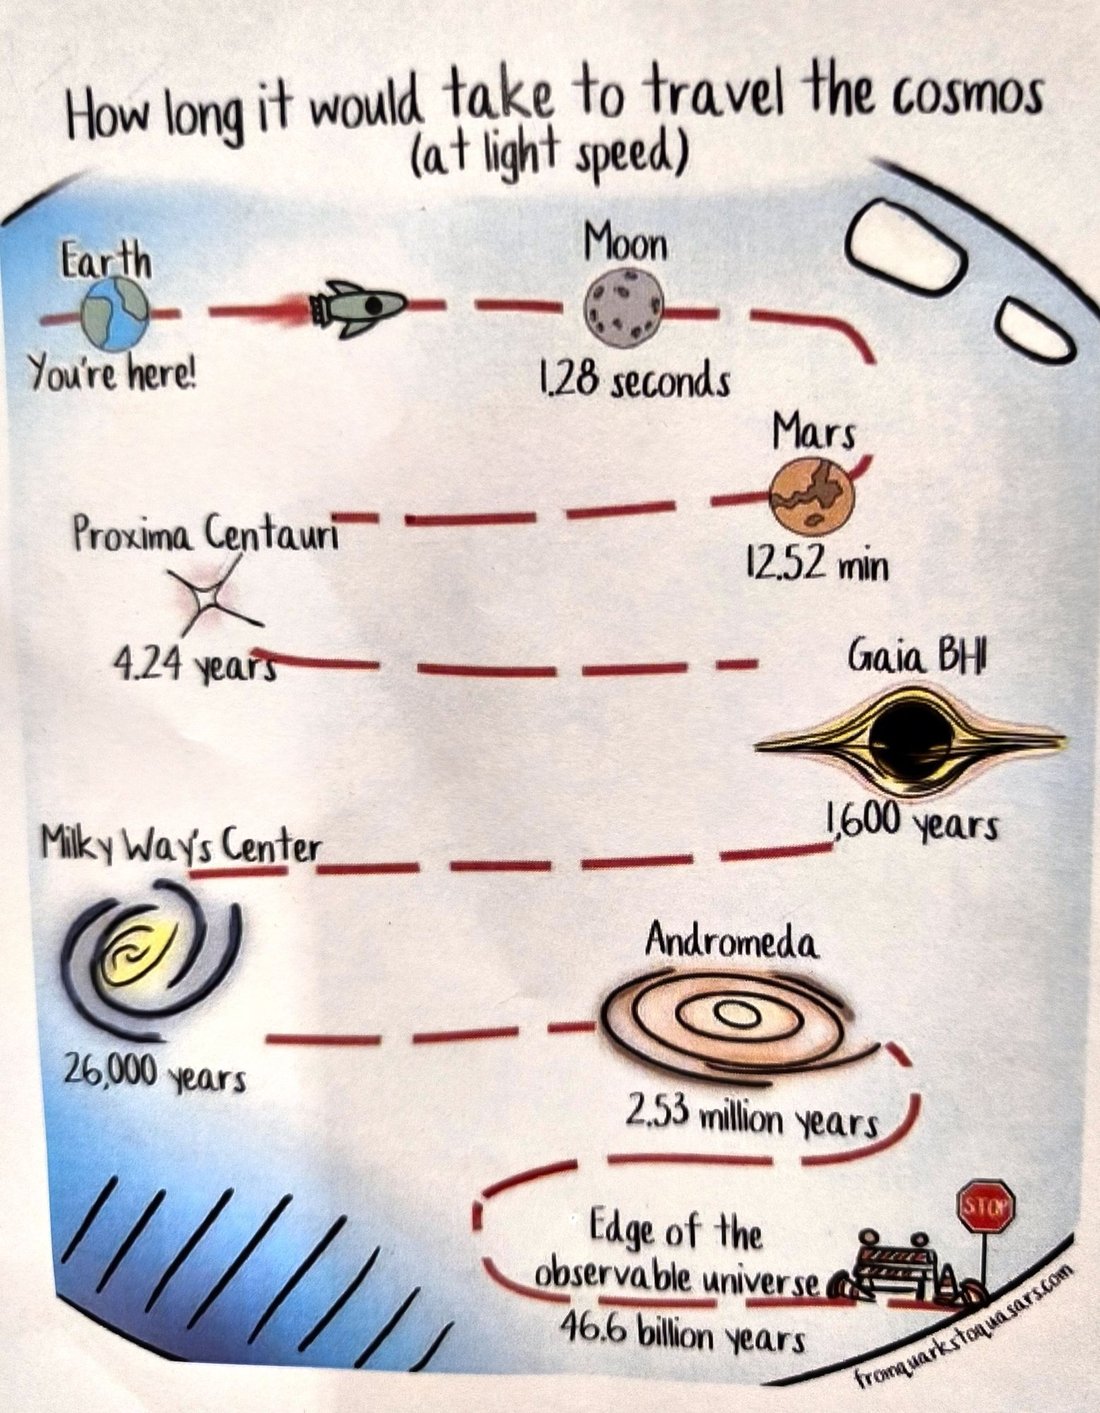 How long it would take to travel the cosmos
(at light speed)
Earth
You're here!
Moon
1.28 seconds
Mars
12.52 min
Proxima Centauri
4.24 years
Gaia BH1
1,600 years
Milky Way's Center
26,000 years
Andromeda
2.53 million years
Edge of the
observable universe
46.6 billion years
STOP
fromquarkstoquasars.com